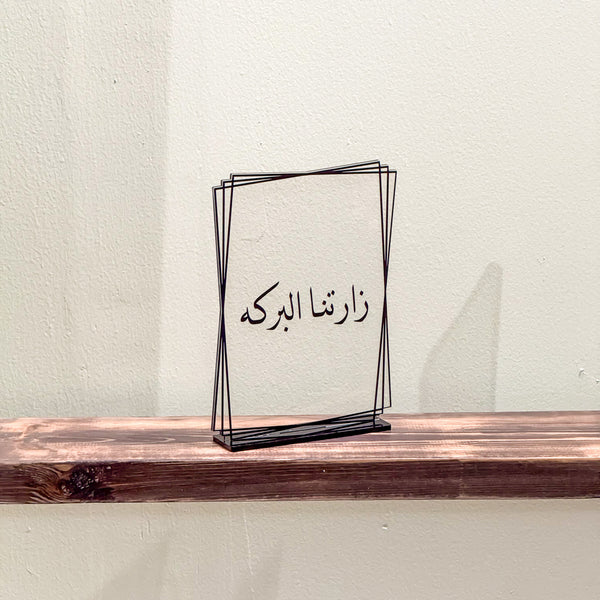 زارتنا البركه